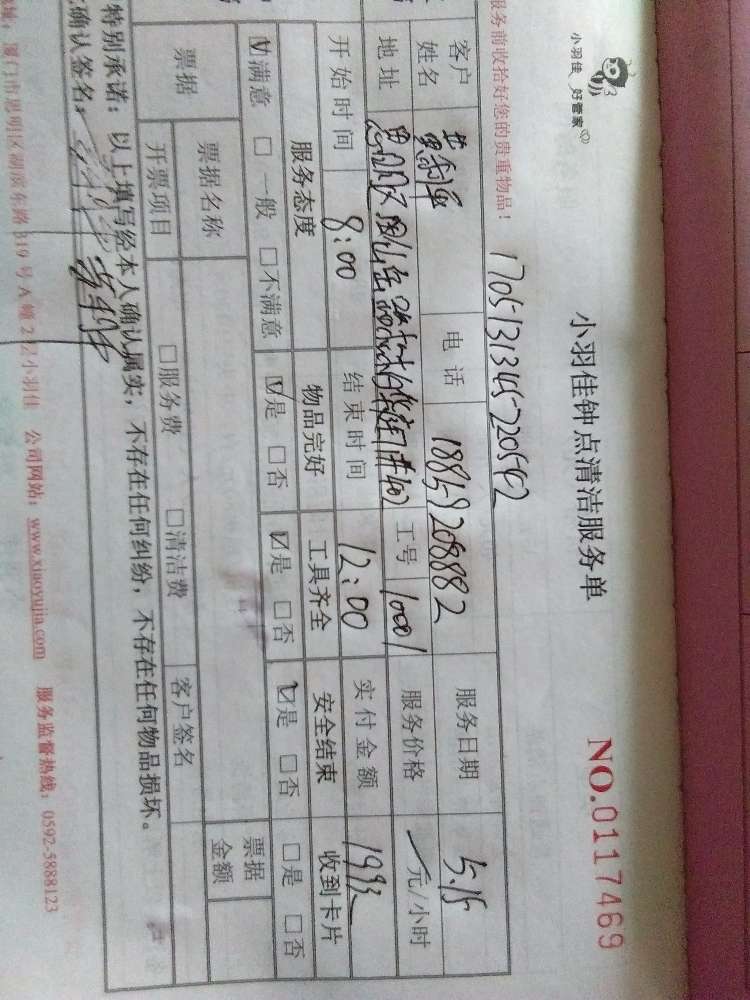 小羽佳 好管家
小羽佳钟点清洁服务单
NO.0117469
服务前收拾好您的贵重物品！
1705131345220542
客户姓名 电话 18859208882 服务日期 5.15
地址 工号 10001 服务价格 元/小时
开始时间 8:00 结束时间 12:00 实付金额 199元
服务态度 物品完好 工具齐全 安全结束 收到卡片
☑满意 □一般 □不满意 ☑是 □否 ☑是 □否 ☑是 □否 □是 □否
票据 票据名称 票据金额
开票项目 □服务费 □清洁费 客户签名
特别承诺：以上填写经本人确认属实，不存在任何纠纷，不存在任何物品损坏。
确认签名：
厦门市思明区湖滨东路319号A幢2层小羽佳 公司网站：www.xiaoyujia.com 服务监督热线：0592-5888123